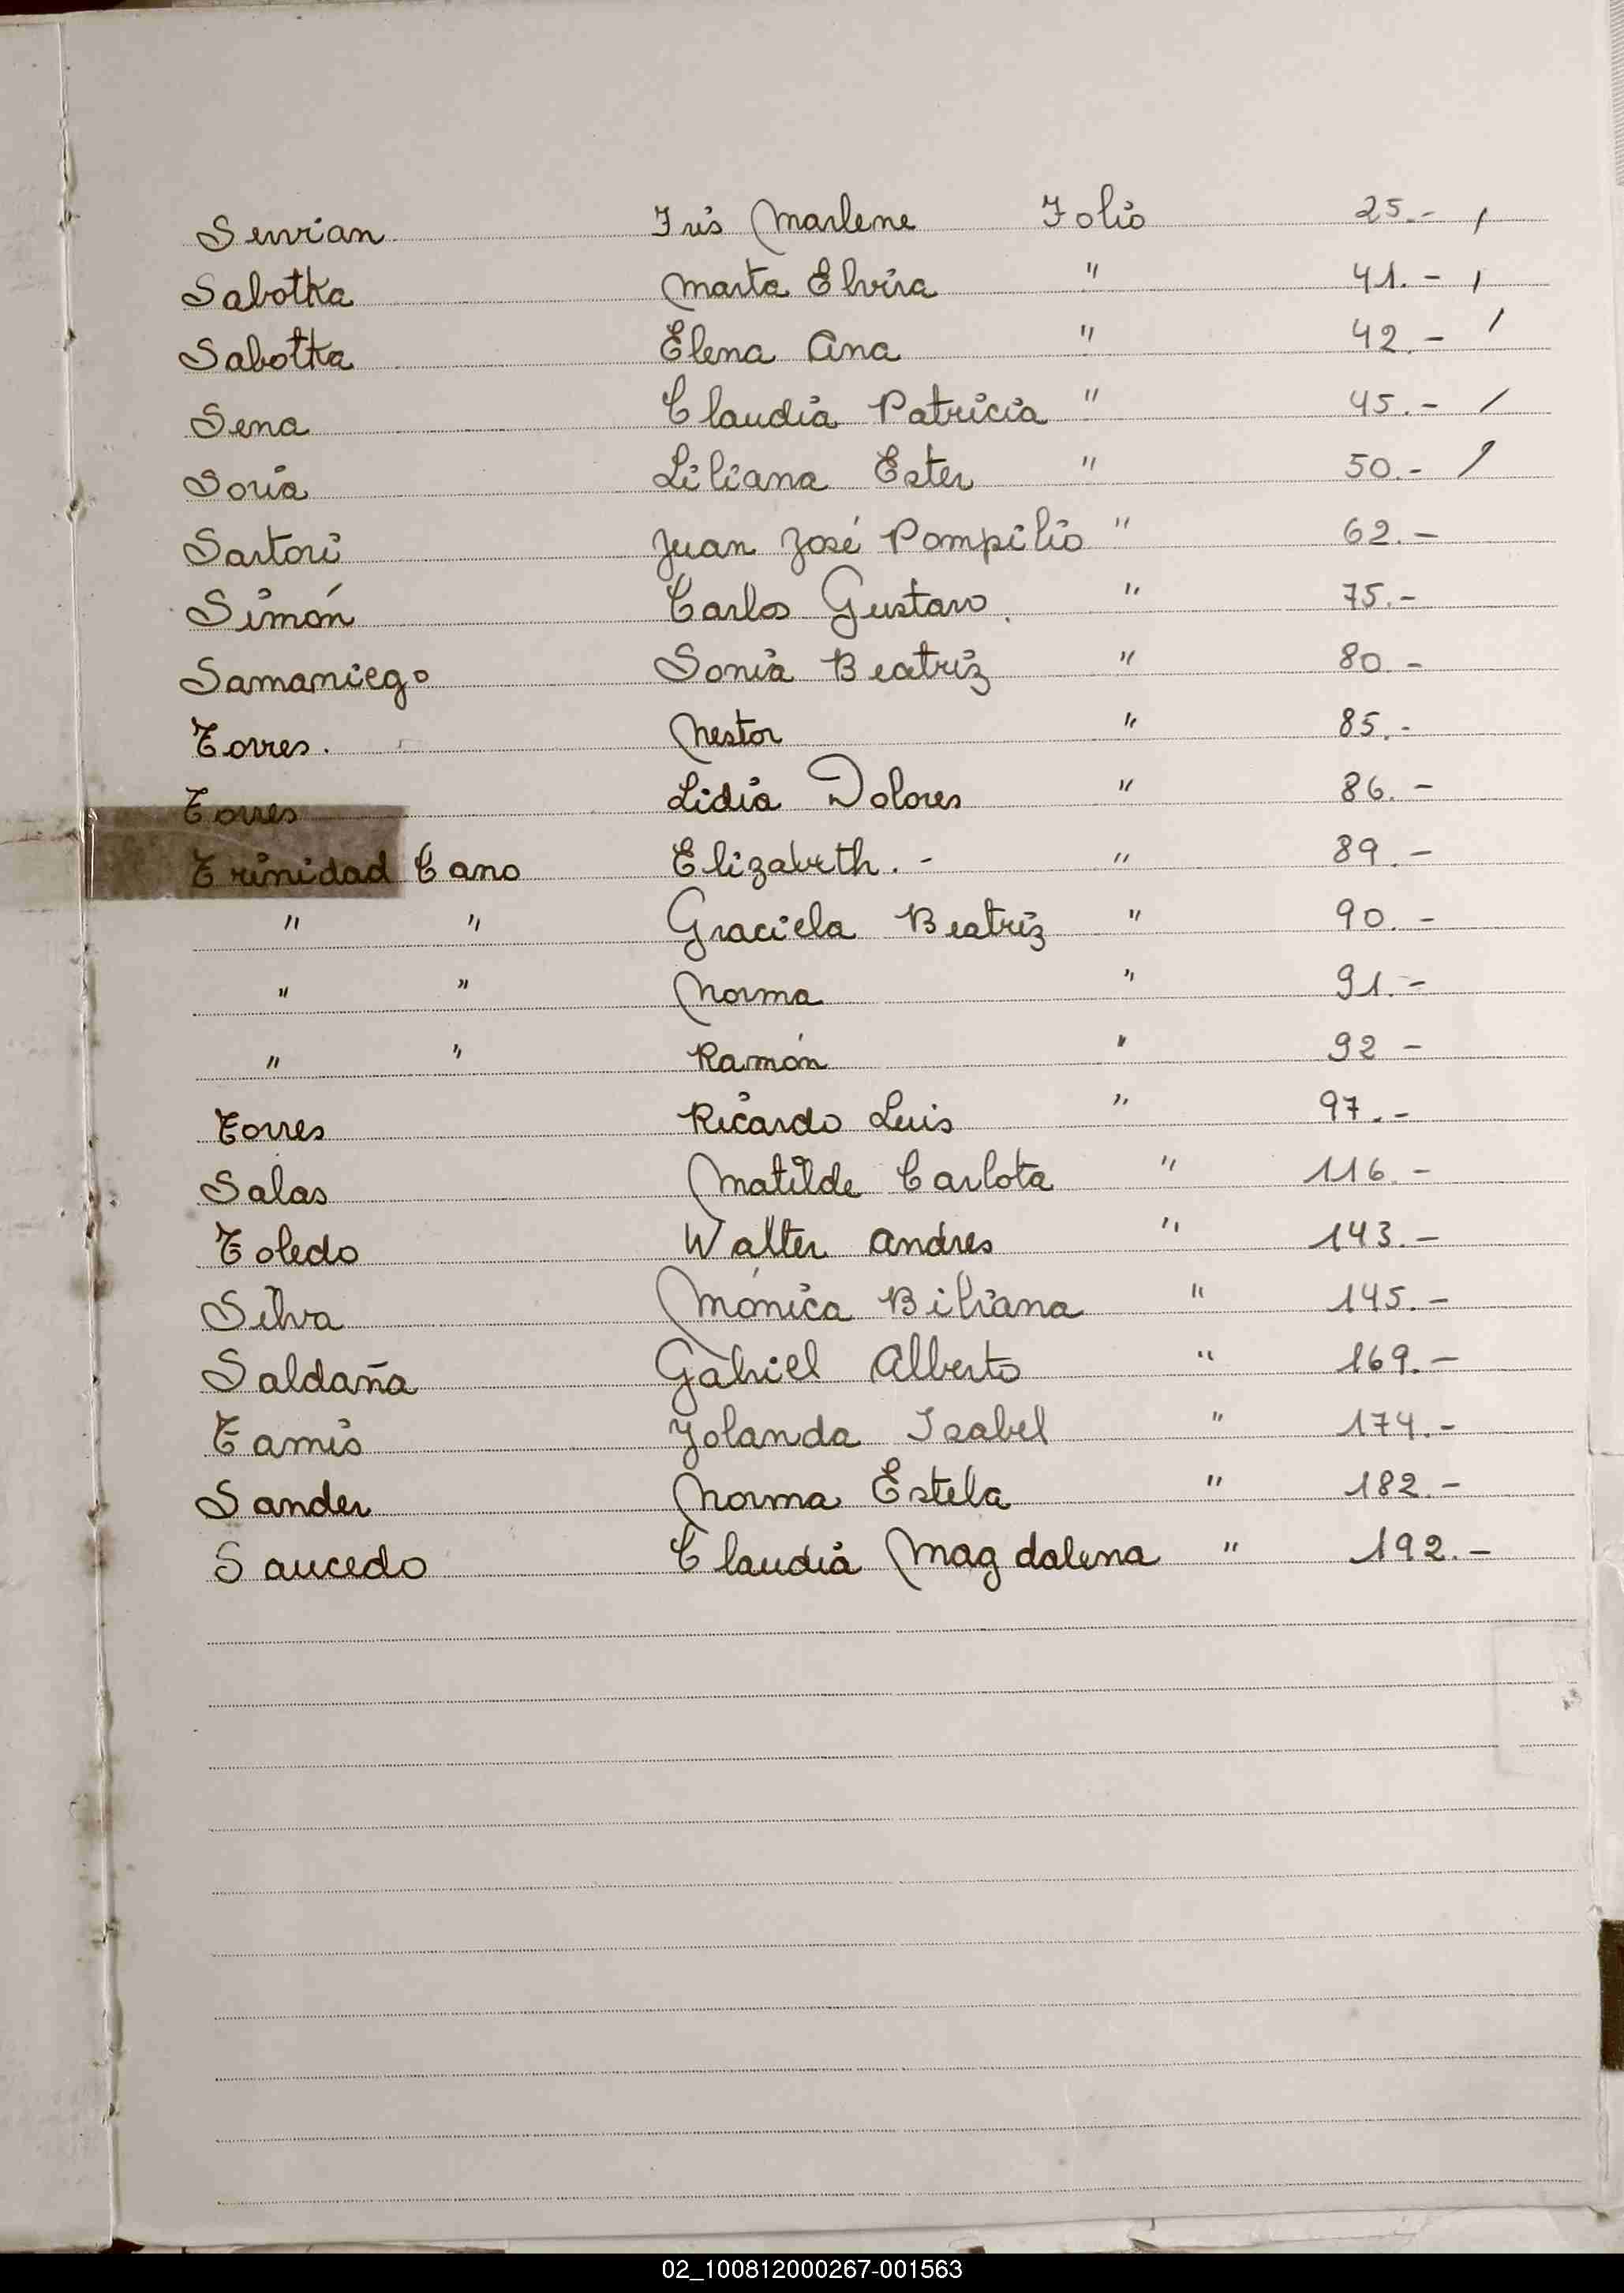 Servian Iris Marlene Folio 25.- ,
Sabotka Marta Elvira " 41.- ,
Sabotka Elena Ana " 42.- /
Sena Claudia Patricia " 45.- /
Soria Liliana Ester " 50.- /
Sartori Juan José Pompilio " 62.-
Simón Carlos Gustavo. " 75.-
Samaniego Sonia Beatriz " 80.-
Torres. Nestor " 85.-
Torres Lidia Dolores " 86.-
Trinidad Cano Elizabeth.- " 89.-
" " Graciela Beatriz " 90.-
" " Norma " 91.-
" " Ramón " 92-
Torres Ricardo Luis " 97.-
Salas Matilde Carlota " 116.-
Toledo Walter Andres " 143.-
Silva Mónica Biliana " 145.-
Saldaña Gabriel Alberto " 169.-
Tamis Yolanda Isabel " 174.-
Sander Norma Estela " 182.-
Saucedo Claudia Magdalena " 192.-
02_100812000267-001563